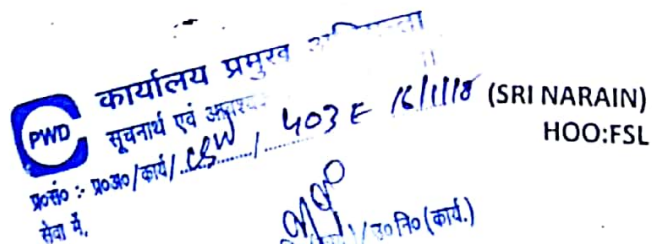 कार्यालय प्रमुख
PWD
सूचनार्थ एवं
प्र०सं० :- प्र०अ०/कार्य/ CSW / 403 E 16/1/18
(SRI NARAIN)
HOO:FSL
सेवा में,
उ०नि०(कार्य.)